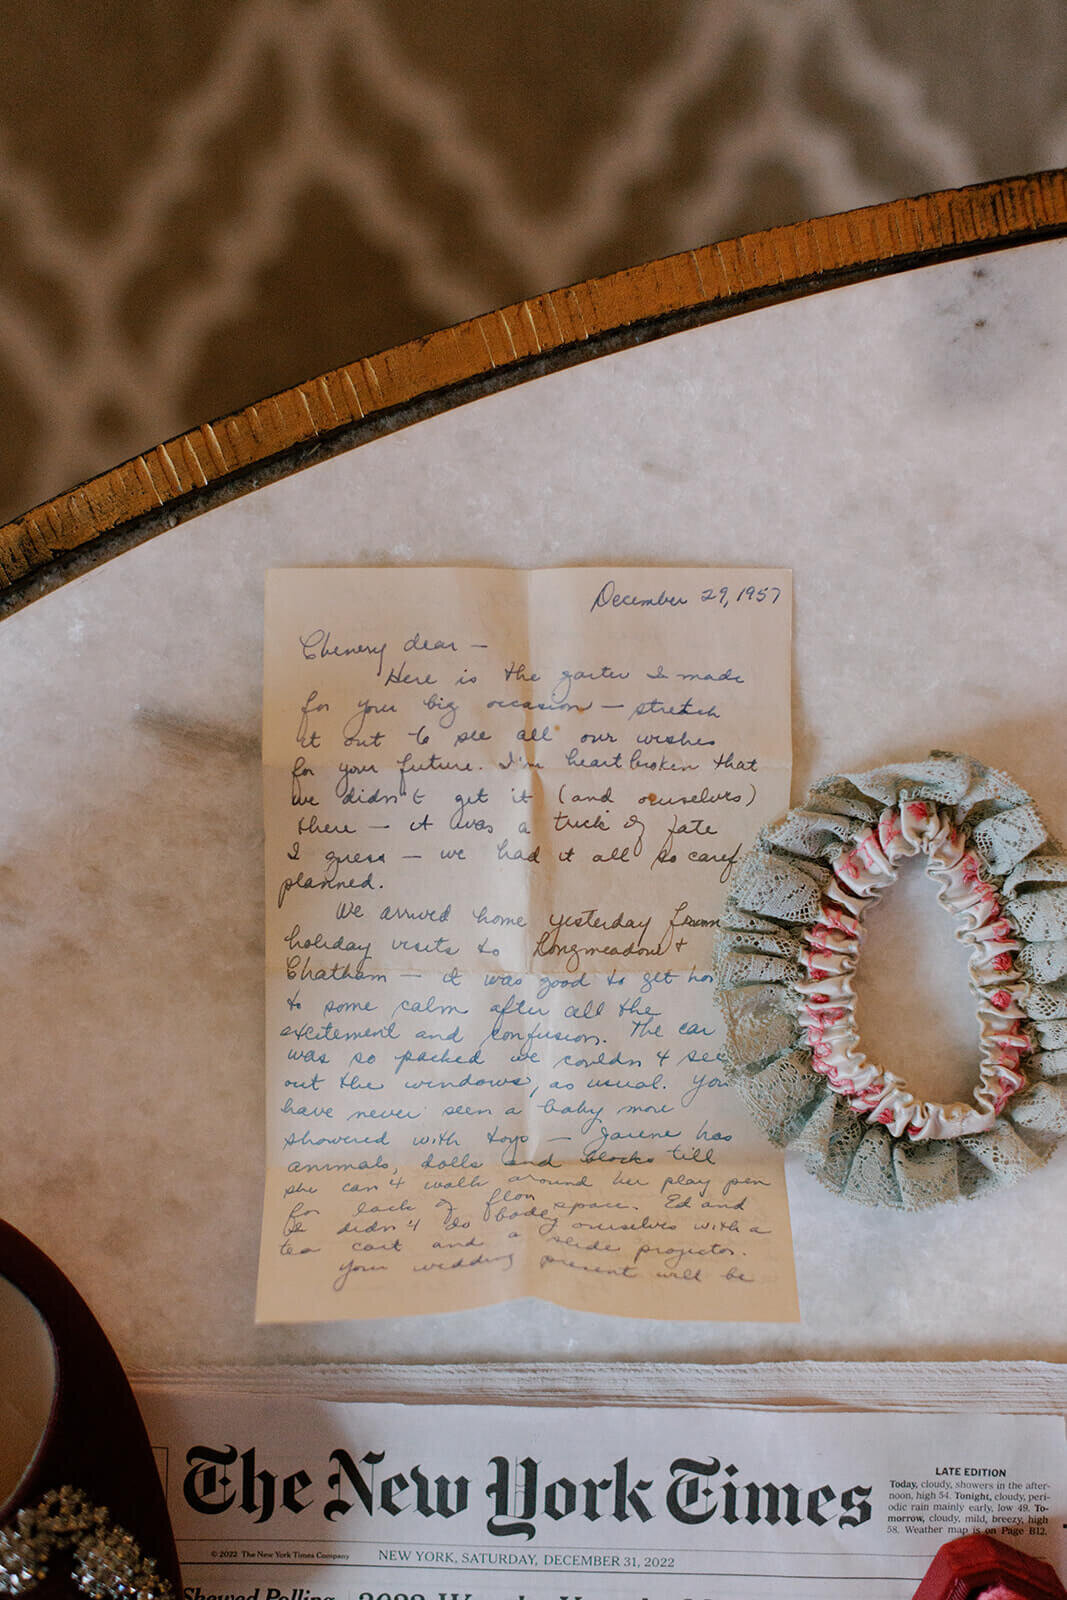 December 29, 1957
Chenery dear —
Here is the garter I made
for your big occasion — stretch
it out to see all our wishes
for your future. I'm heartbroken that
we didn't get it (and ourselves)
there — it was a trick of fate
I guess — we had it all so caref
planned.
We arrived home yesterday from
holiday visits to Longmeadow +
Chatham — it was good to get ho
to some calm after all the
excitement and confusion. The car
was so packed we couldn't see
out the windows, as usual. You
have never seen a baby more
showered with toys — Jarene has
animals, dolls and blocks till
she can't walk around her play pen
for lack of floor space. Ed and
I didn't do badly ourselves with a
tea cart and a slide projector.
Your wedding present will be
The New York Times
LATE EDITION
Today, cloudy, showers in the after-
noon, high 54. Tonight, cloudy, peri-
odic rain mainly early, low 49. To-
morrow, cloudy, mild, breezy, high
58. Weather map is on Page B12.
© 2022 The New York Times Company
NEW YORK, SATURDAY, DECEMBER 31, 2022
Skewed Polling